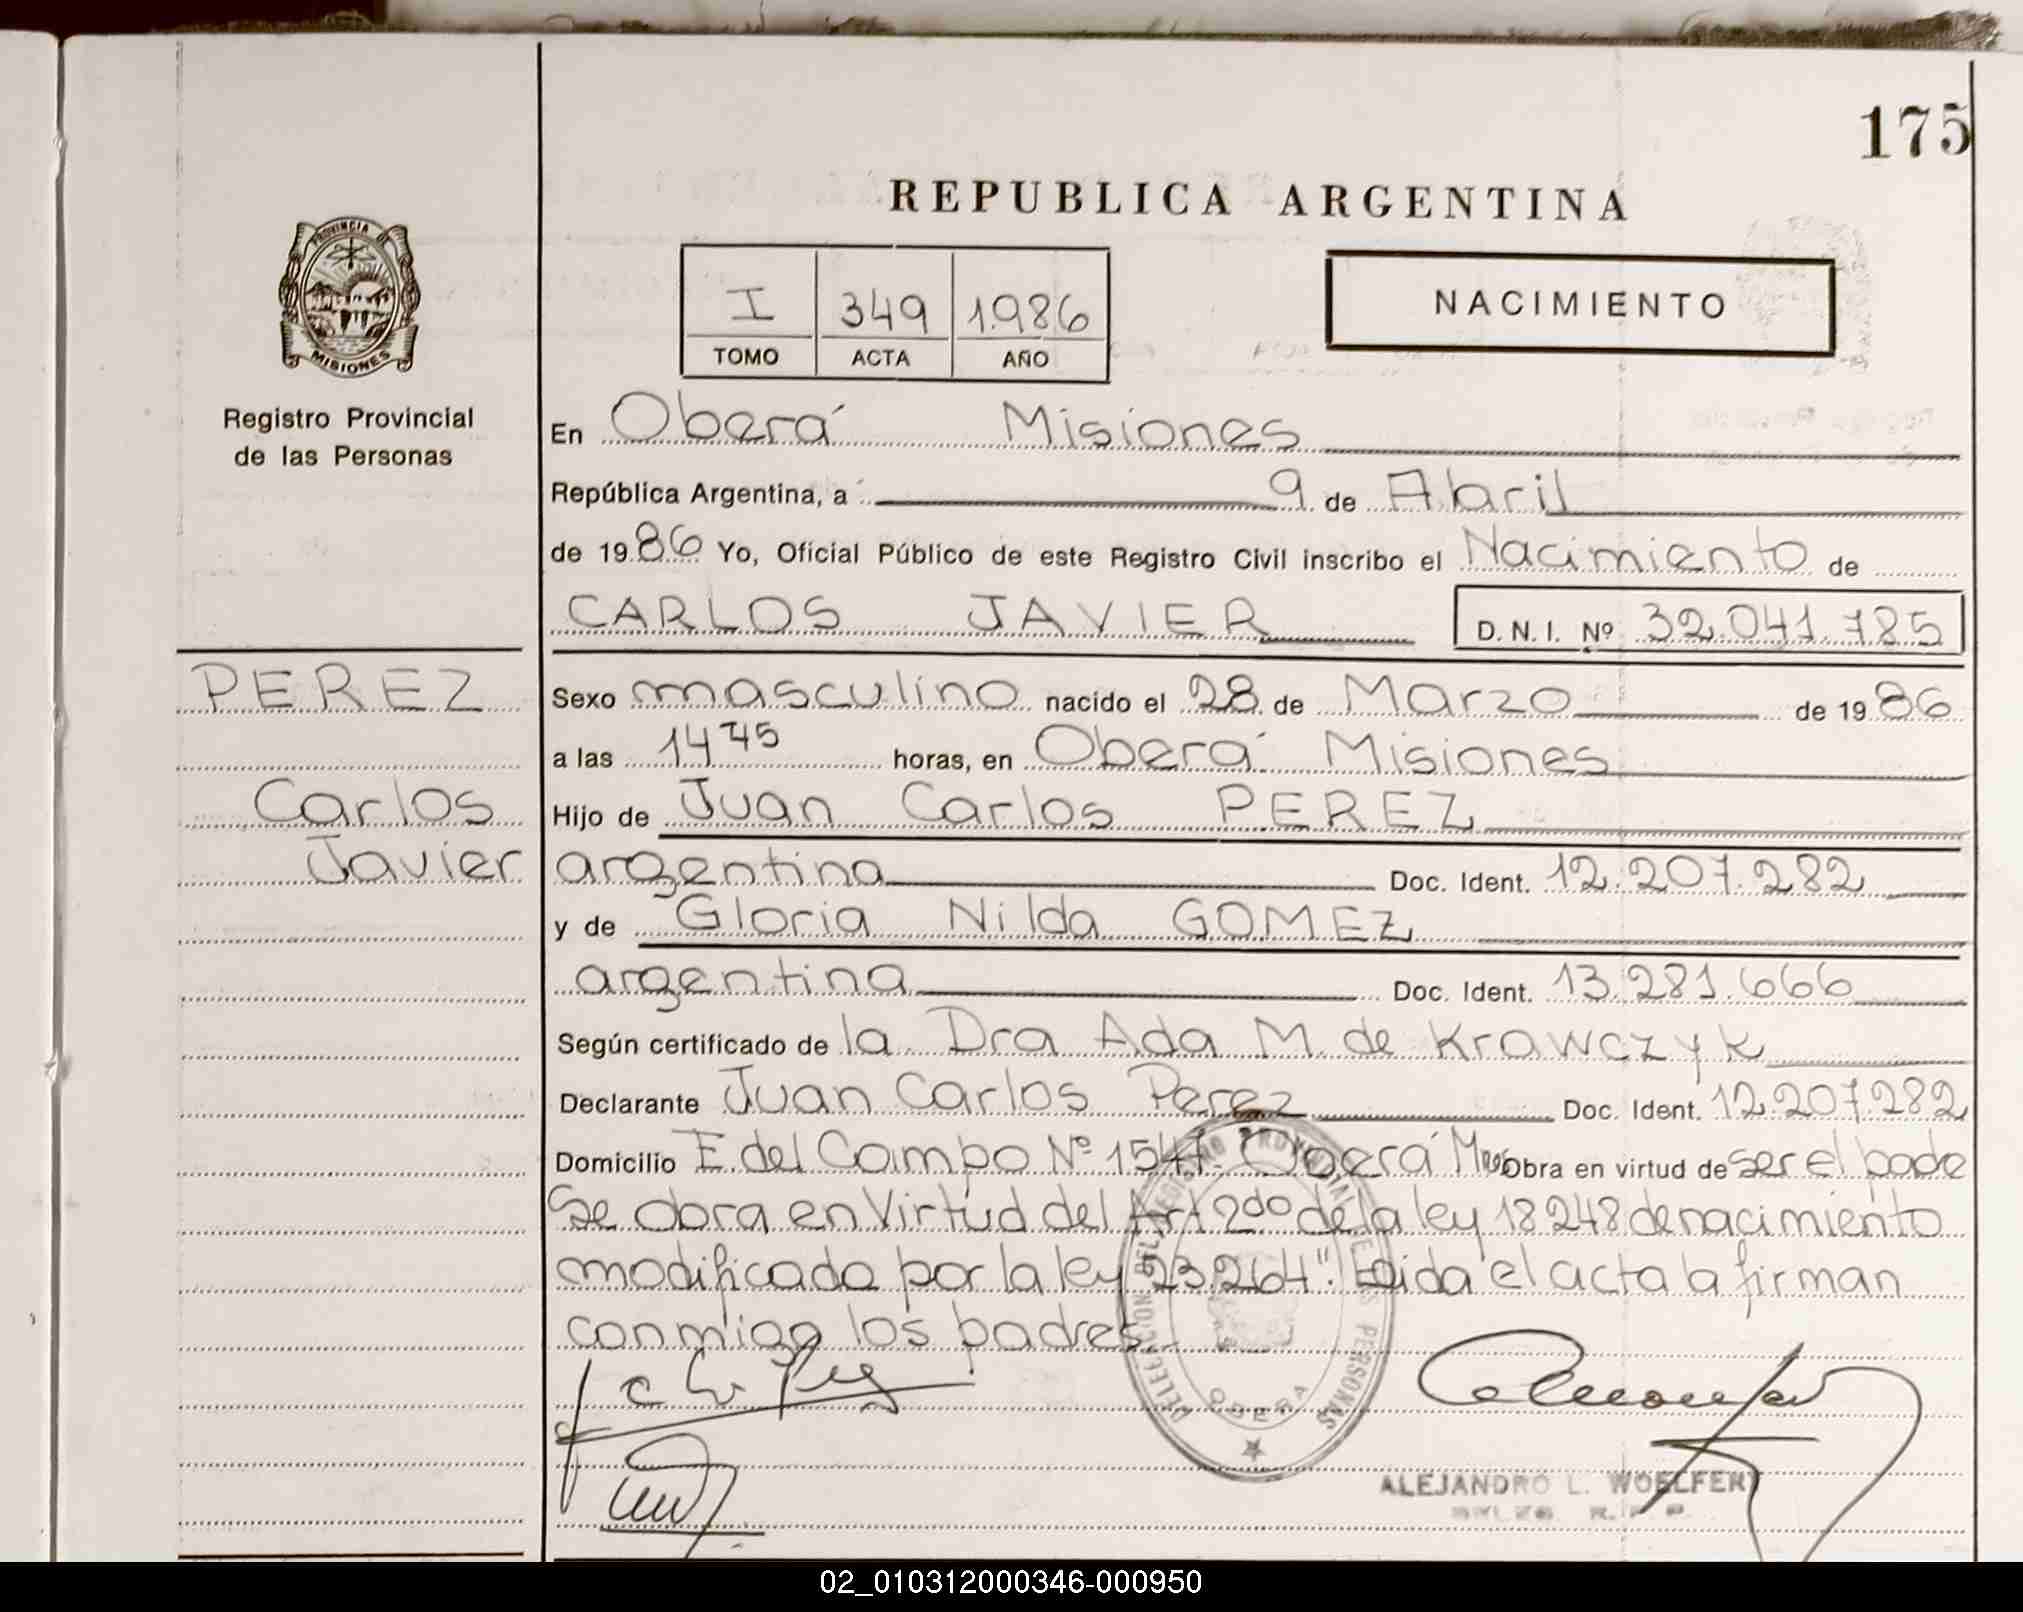 175
REPUBLICA ARGENTINA
PROVINCIA DE
MISIONES
Registro Provincial
de las Personas
I 349 1.986
TOMO ACTA AÑO
NACIMIENTO
En Oberá Misiones
República Argentina, a 9 de Abril
de 1986 Yo, Oficial Público de este Registro Civil inscribo el Nacimiento de
CARLOS JAVIER D. N. I. Nº 32.041.785
PEREZ
Carlos
Javier
Sexo masculino nacido el 28 de Marzo de 1986
a las 14 45 horas, en Oberá Misiones
Hijo de Juan Carlos PEREZ
argentina Doc. Ident. 12.207.282
y de Gloria Nilda GOMEZ
argentina Doc. Ident. 13.281.666
Según certificado de la Dra Ada M. de Krawczyk
Declarante Juan Carlos Perez Doc. Ident. 12.207.282
Domicilio E. del Campo Nº Oberá Obra en virtud de ser el padre
Se obra en Virtud del Art 2do de la ley 18248 de nacimiento
modificada por la ley 23.264". Leida el acta la firman
conmigo los padres
DELEGACION DEL REGISTRO PROVINCIAL DE LAS PERSONAS
OBERA
ALEJANDRO L.
02_010312000346-000950